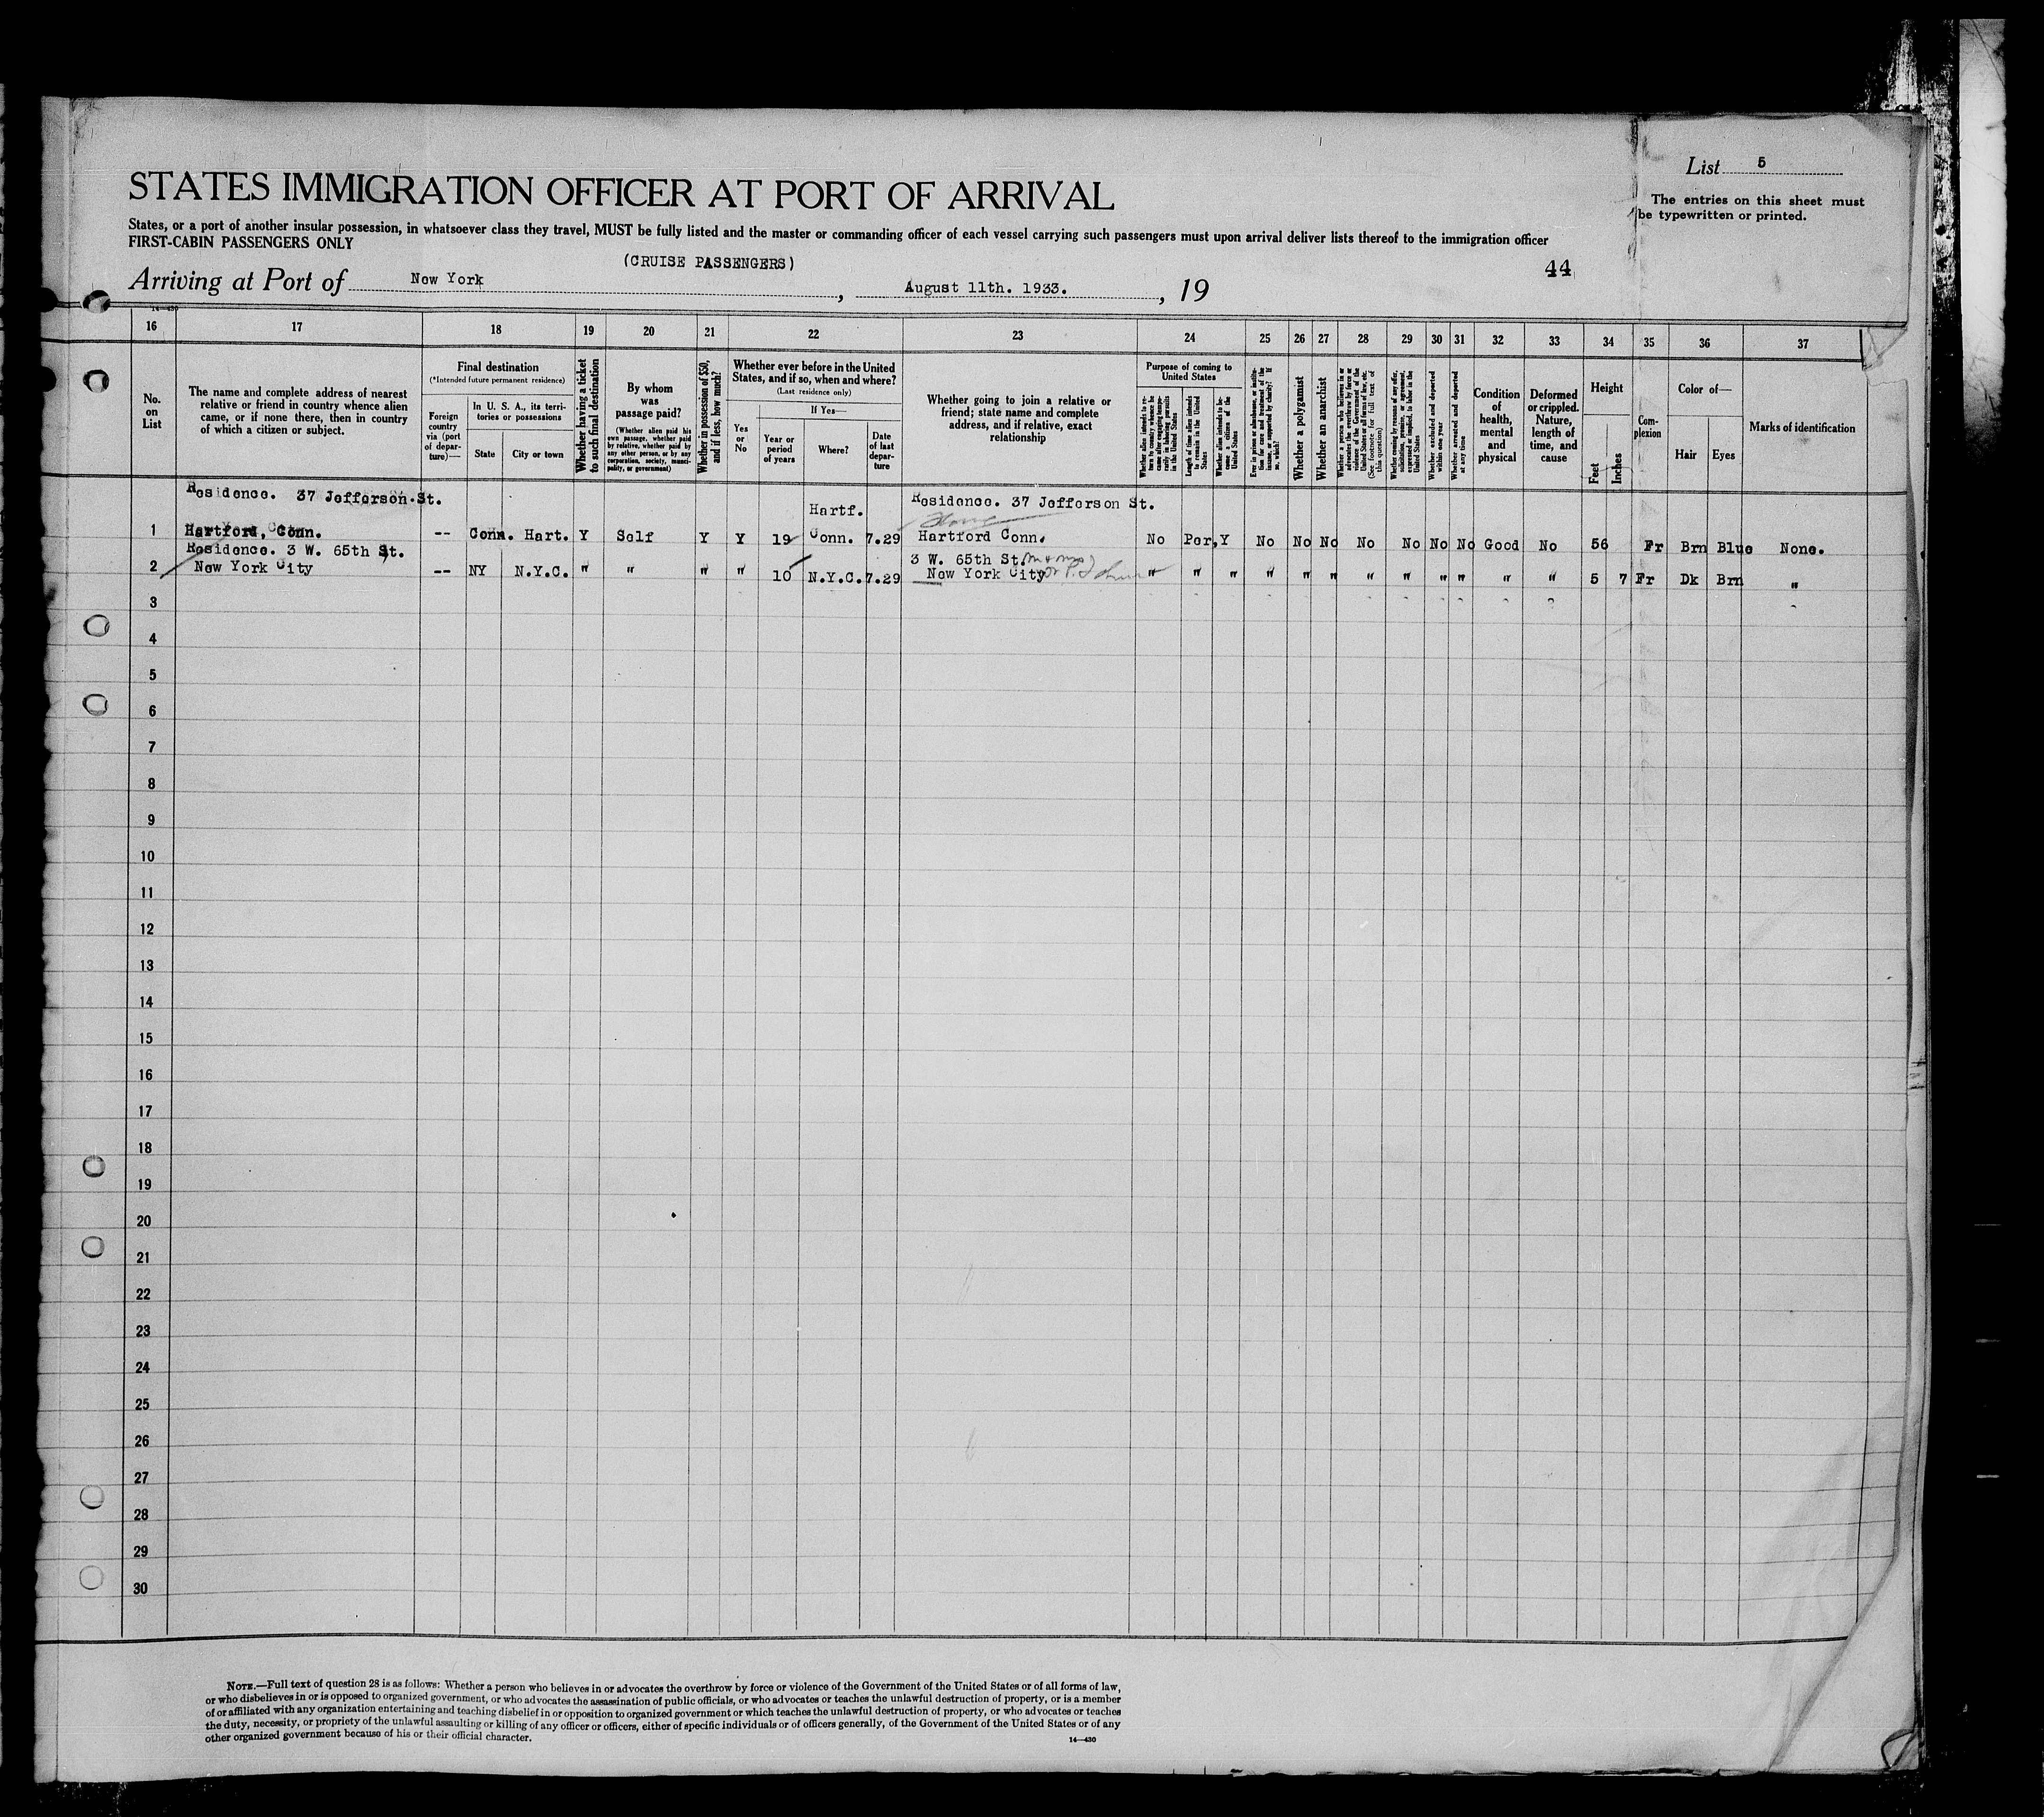 List 5
The entries on this sheet must
be typewritten or printed.
STATES IMMIGRATION OFFICER AT PORT OF ARRIVAL
States, or a port of another insular possession, in whatsoever class they travel, MUST be fully listed and the master or commanding officer of each vessel carrying such passengers must upon arrival deliver lists thereof to the immigration officer
FIRST-CABIN PASSENGERS ONLY
(CRUISE PASSENGERS)
44
Arriving at Port of New York, August 11th. 1933., 19
14—430
16 17 18 19 20 21 22 23 24 25 26 27 28 29 30 31 32 33 34 35 36 37
No. on List
The name and complete address of nearest
relative or friend in country whence alien
came, or if none there, then in country
of which a citizen or subject.
Final destination
(*Intended future permanent residence)
Foreign country via (port of departure)—
In U. S. A., its territories or possessions
State
City or town
Whether having a ticket to such final destination
By whom was passage paid?
(Whether alien paid his own passage, whether paid by relative, whether paid by any other person, or by any corporation, society, municipality, or government)
Whether in possession of $50, and if less, how much?
Whether ever before in the United States, and if so, when and where?
(Last residence only)
Yes or No
If Yes—
Year or period of years
Where?
Date of last departure
Whether going to join a relative or
friend; state name and complete
address, and if relative, exact
relationship
Purpose of coming to United States
Whether alien intends to return to country whence he came after engaging temporarily in laboring pursuits in the United States
Length of time alien intends to remain in the United States
Whether alien intends to become a citizen of the United States
Ever in prison or almshouse, or institution for care and treatment of the insane, or supported by charity? If so, which?
Whether a polygamist
Whether an anarchist
Whether a person who believes in or advocates the overthrow by force or violence of the Government of the United States or all forms of law, etc. (See footnote for full text of this question)
Whether coming by reasons of any offer, solicitation, promise, or agreement, expressed or implied, to labor in the United States
Whether excluded and deported within one year
Whether arrested and deported at any time
Condition of health, mental and physical
Deformed or crippled. Nature, length of time, and cause
Height
Feet
Inches
Complexion
Color of—
Hair
Eyes
Marks of identification
Residence. 37 Jefferson St. Hartf. Residence. 37 Jefferson St.
1 Hartford, Conn. -- Conn. Hart. Y Self Y Y 19 Conn. 7.29 Hartford Conn. No Per, Y No No No No No No No Good No 56 Fr Brn Blue None.
Residence. 3 W. 65th St. 3 W. 65th St.
2 New York City -- NY N.Y.C. " " " " 10 N.Y.C. 7.29 New York City " " " " " " " " " " " " 5 7 Fr Dk Brn "
3
4
5
6
7
8
9
10
11
12
13
14
15
16
17
18
19
20
21
22
23
24
25
26
27
28
29
30
NOTE.—Full text of question 28 is as follows: Whether a person who believes in or advocates the overthrow by force or violence of the Government of the United States or of all forms of law,
or who disbelieves in or is opposed to organized government, or who advocates the assassination of public officials, or who advocates or teaches the unlawful destruction of property, or is a member
of or affiliated with any organization entertaining and teaching disbelief in or opposition to organized government or which teaches the unlawful destruction of property, or who advocates or teaches
the duty, necessity, or propriety of the unlawful assaulting or killing of any officer or officers, either of specific individuals or of officers generally, of the Government of the United States or of any
other organized government because of his or their official character.
14—430